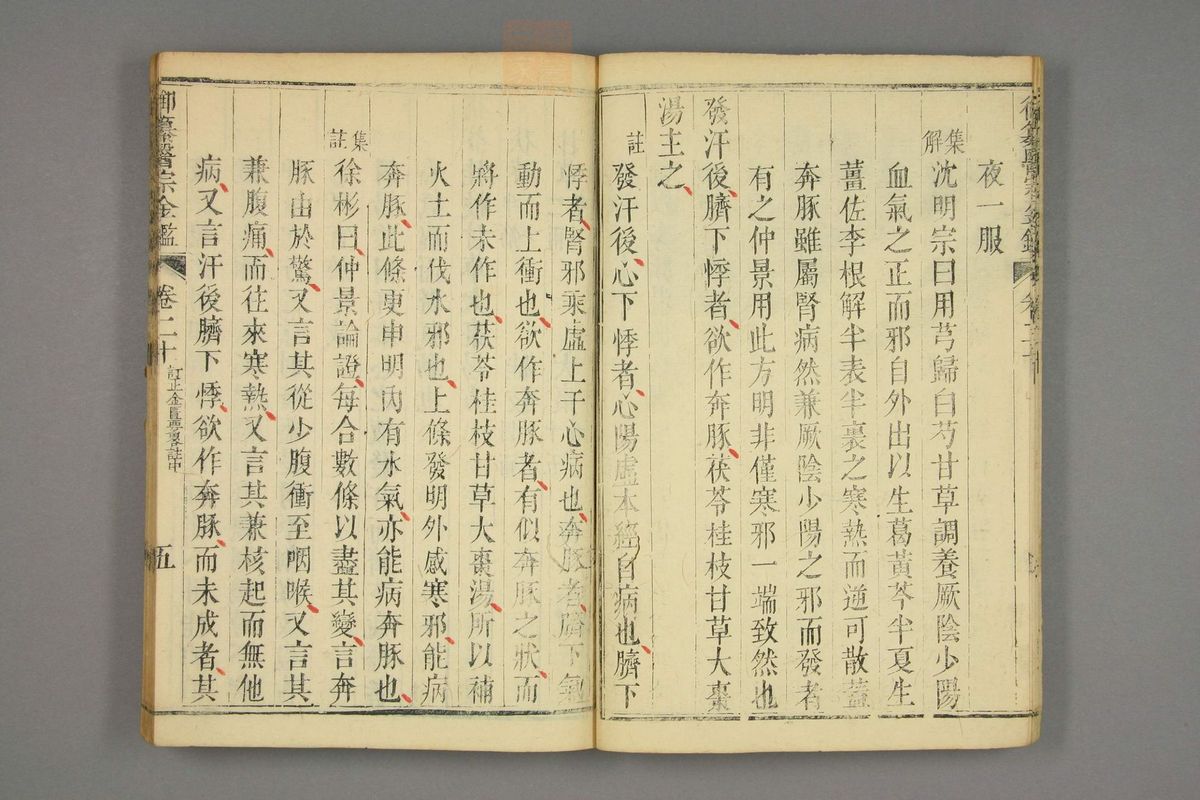 夜一服
集解
沈明宗曰用芎歸白芍甘草調養厥陰少陽
血氣之正而邪自外出以生葛黃芩半夏生
薑佐李根解半表半裏之寒熱而逆可散蓋
奔豚雖屬腎病然兼厥陰少陽之邪而發者
有之仲景用此方明非僅寒邪一端致然也
發汗後臍下悸者欲作奔豚茯苓桂枝甘草大棗
湯主之
註
發汗後心下悸者心陽虛本經自病也臍下
悸者腎邪乘虛上干心病也奔豚者臍下氣
動而上衝也欲作奔豚者有似奔豚之狀而
將作未作也茯苓桂枝甘草大棗湯所以補
火土而伐水邪也上條發明外感寒邪能病
奔豚此條更申明內有水氣亦能病奔豚也
集註
徐彬曰仲景論證每合數條以盡其變言奔
豚由於驚又言其從少腹衝至咽喉又言其
兼腹痛而往來寒熱又言其兼核起而無他
病又言汗後臍下悸欲作奔豚而未成者其
御纂醫宗金鑑
卷二十
訂正金匱要畧註中
五